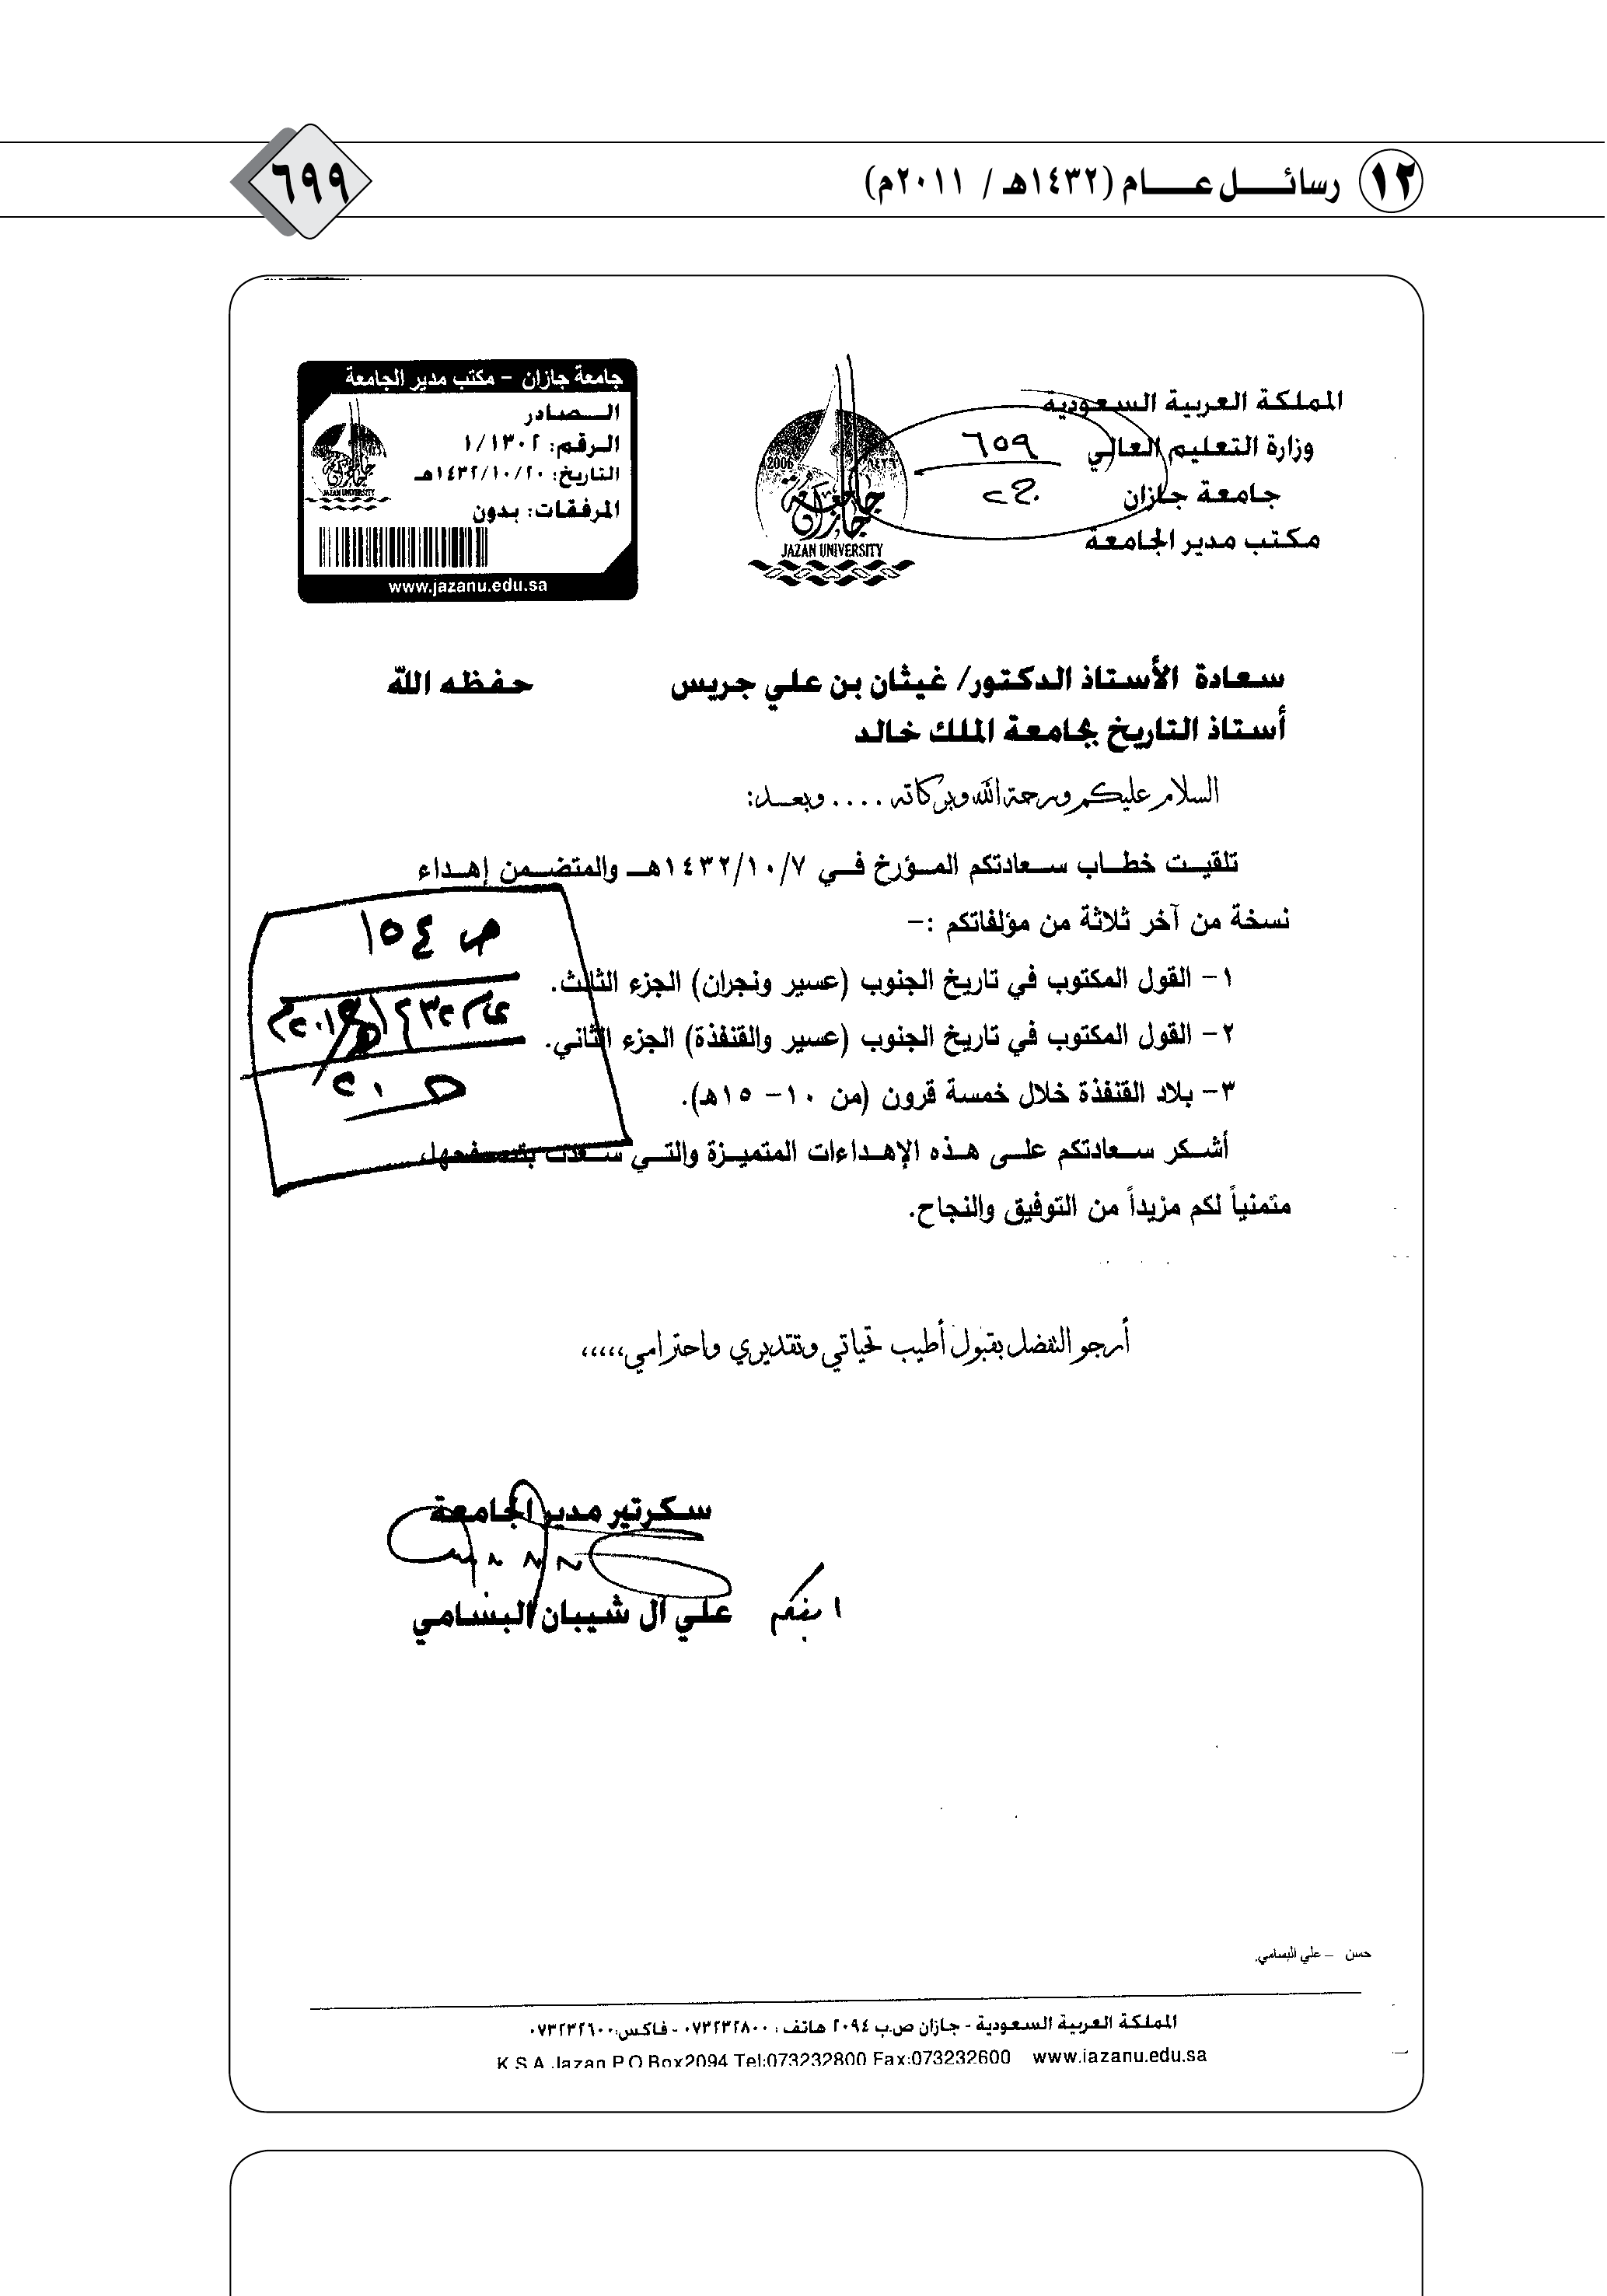 ١٢ رسائل عام (١٤٣٢هـ / ٢٠١١م)
٦٩٩
المملكة العربية السعودية
وزارة التعليم العالي
جامعة جازان
مكتب مدير الجامعة
٦٥٩
2006
JAZAN UNIVERSITY
جامعة جازان - مكتب مدير الجامعة
الصادر
الرقم: ١/١٣٠٢
التاريخ: ١٤٣٢/١٠/٢٠هـ
المرفقات: بدون
JAZAN UNIVERSITY
www.jazanu.edu.sa
سعادة الأستاذ الدكتور/ غيثان بن علي جريس حفظه الله
أستاذ التاريخ بجامعة الملك خالد
السلام عليكم ورحمة الله وبركاته .... وبعد:
تلقيت خطاب سعادتكم المؤرخ في ١٤٣٢/١٠/٧هـ والمتضمن إهداء
نسخة من آخر ثلاثة من مؤلفاتكم :-
١- القول المكتوب في تاريخ الجنوب (عسير ونجران) الجزء الثالث.
٢- القول المكتوب في تاريخ الجنوب (عسير والقنفذة) الجزء الثاني.
٣- بلاد القنفذة خلال خمسة قرون (من ١٠- ١٥هـ).
ص ١٥٤
أشكر سعادتكم على هذه الإهداءات المتميزة والتي سعدت بتصفحها،
متمنياً لكم مزيداً من التوفيق والنجاح.
أرجو التفضل بقبول أطيب تحياتي وتقديري واحترامي،،،،،
سكرتير مدير الجامعة
علي آل شيبان البسامي
حسن - علي البسامي.
المملكة العربية السعودية - جازان ص.ب ٢٠٩٤ هاتف : ٠٧٣٢٣٢٨٠٠ - فاكس:٠٧٣٢٣٢٦٠٠
K.S.A Jazan P.O.Box2094 Tel:073232800 Fax:073232600 www.jazanu.edu.sa